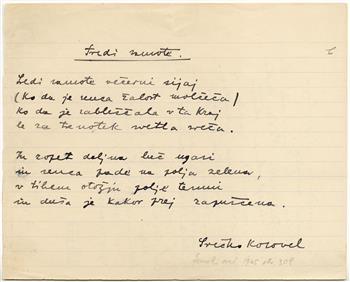 Sredi samote.
Sredi samote večerni sijaj
(Ko da je senca žalost molčeča)
ko da je zableščala v ta kraj
le za trenotek svetla sveča.
In zopet daljna luč ugasi
in senca pade na polja zelena,
v tihem otožju polje temni
in duša je kakor prej zapuščena.
Srečko Kosovel